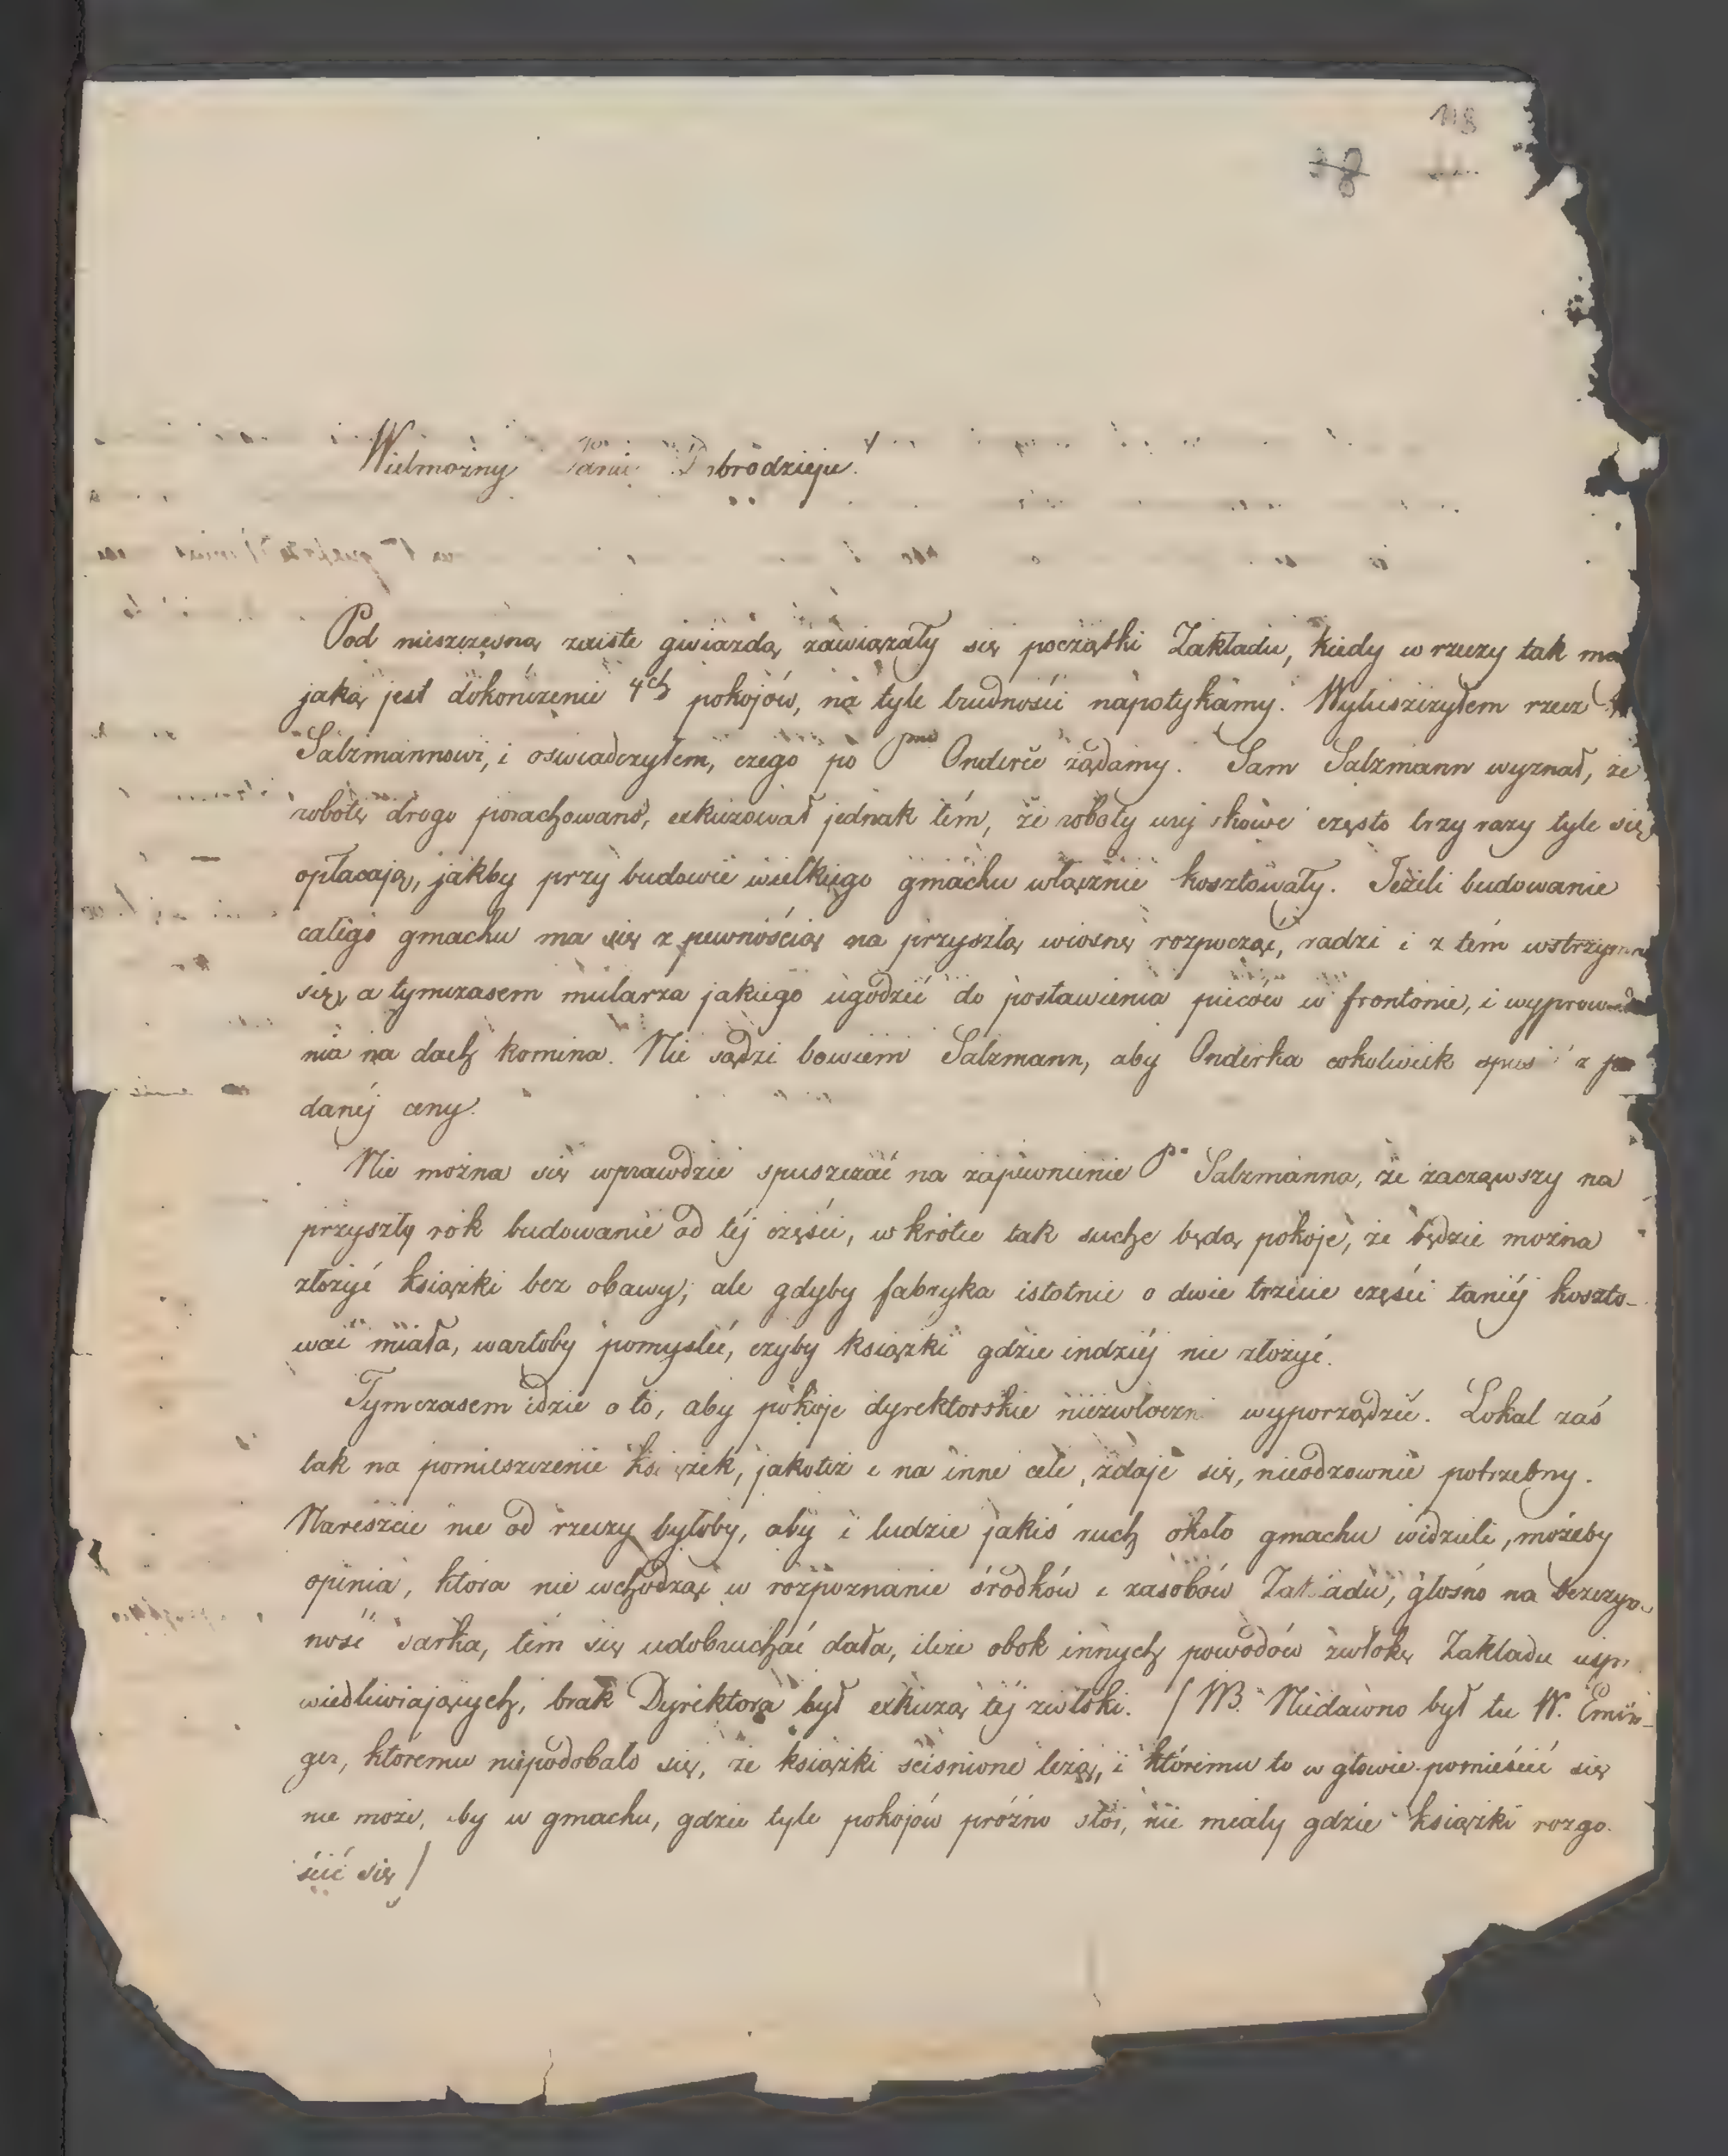 118
Wielmożny Panie Dobrodzieju!
Pod nieszczęsną zaiste gwiazdą zawiązały się początki Zakładu, kiedy w rzeczy tak
jaką jest dokończenie 4ch pokojów, na tyle trudności napotykamy. Wyłuszczyłem rzecz
Salzmannowi, i oświadczyłem, czego po Pnu Onderce żądamy. Sam Salzmann wyznał, że
robotę drogo porachowano, exkuzował jednak tém, że roboty często trzy razy tyle się
opłacają, jakby przy budowie wielkiego gmachu włącznie kosztowały. Jeżeli budowanie
całego gmachu ma się z pewnością na przyszłą wiosnę rozpocząć, radzi i z tém
się, a tymczasem mularza jakiego ugodzić do postawienia pieców w frontonie, i
nia na dach komina. Nie sądzi bowiem Salzmann, aby Onderka cokolwiek z
danéj ceny.
Nie można się wprawdzie spuszczać na zapewnienie Pa Salzmanna, że zacząwszy na
przyszły rok budowanie od téj części, wkrótce tak suche będą pokoje, że będzie można
złożyć książki bez obawy; ale gdyby fabryka istotnie o dwie trzecie części taniéj koszto-
wać miała, wartoby pomyśleć, czyby książki gdzie indziéj nie złożyć.
Tymczasem idzie o to, aby pokoje dyrektorskie niezwłocznie wyporządzić. Lokal zaś
tak na pomieszczenie książek, jakoteż i na inne cele, zdaje się, nieodzownie potrzebny.
Nareszcie nie od rzeczy byłoby, aby i ludzie jakiś ruch około gmachu widzieli, możeby
opinia, która nie wchodząc w rozpoznanie środków i zasobów Zakładu, głośno na bezczyn-
ność sarka, tém się udobruchać dała, ileże obok innych powodów zwłokę Zakładu uspr
wiedliwiających, brak Dyrektora był exkuzą téj zwłoki. /NB. Niedawno był tu W.
ger, któremu niepodobało się, że książki ściśnione leżą, i któremu to w głowie pomieścić się
nie może, by w gmachu, gdzie tyle pokojów próżno stoi, nie miały gdzie książki rozgo-
ścić się/